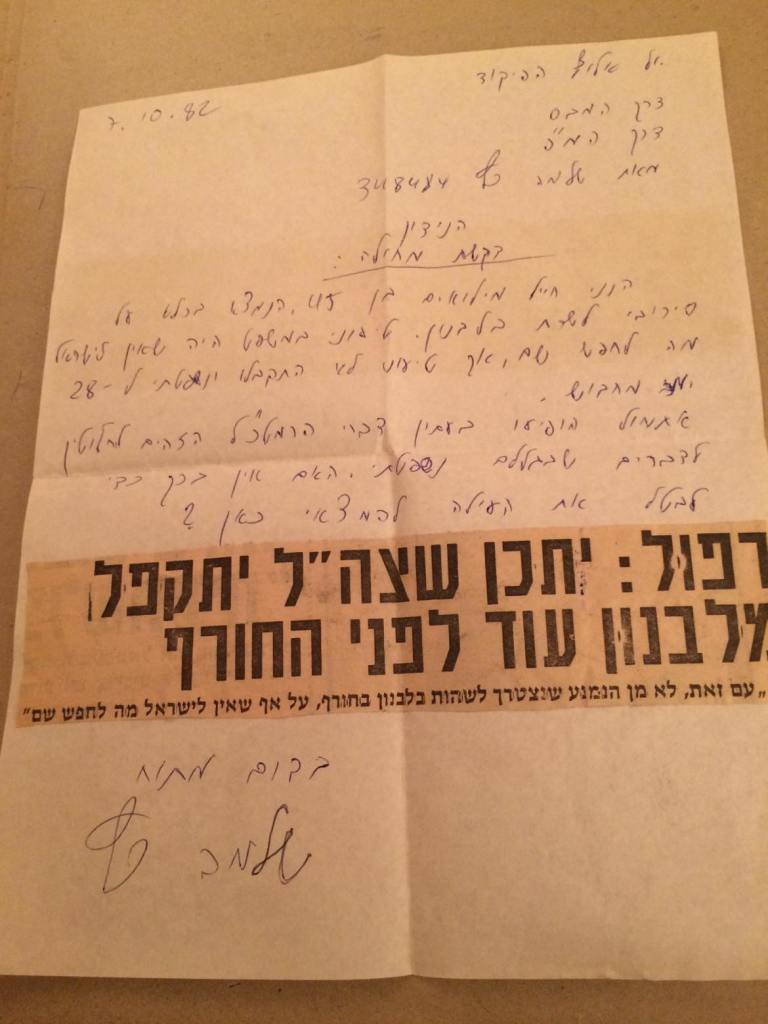 7.10.82
אל אלוף הפיקוד
דרך המבס
דרך המ"פ
מאת שלמה 348484
הנידון
בקשת מחילה:
הנני חייל מילואים בן 45, הנמצא בכלא על
סירובי לשרת בלבנון. טיעוני במשפט היה שאין לישראל
מה לחפש שם, אך טיעוני לא התקבלו ונשפטתי ל-28
מחבוש.
אתמול הופיעו בעתון דברי הרמטכ"ל הזהים לחלוטין
לדברים שבגללם נשפטתי. האם אין בכך כדי
לבטל את העילה להמצאי כאן?
רפול: יתכן שצה"ל יתקפל
מלבנון עוד לפני החורף
"עם זאת, לא מן הנמנע שנצטרך לשהות בלבנון בחורף, על אף שאין לישראל מה לחפש שם"
שלמה